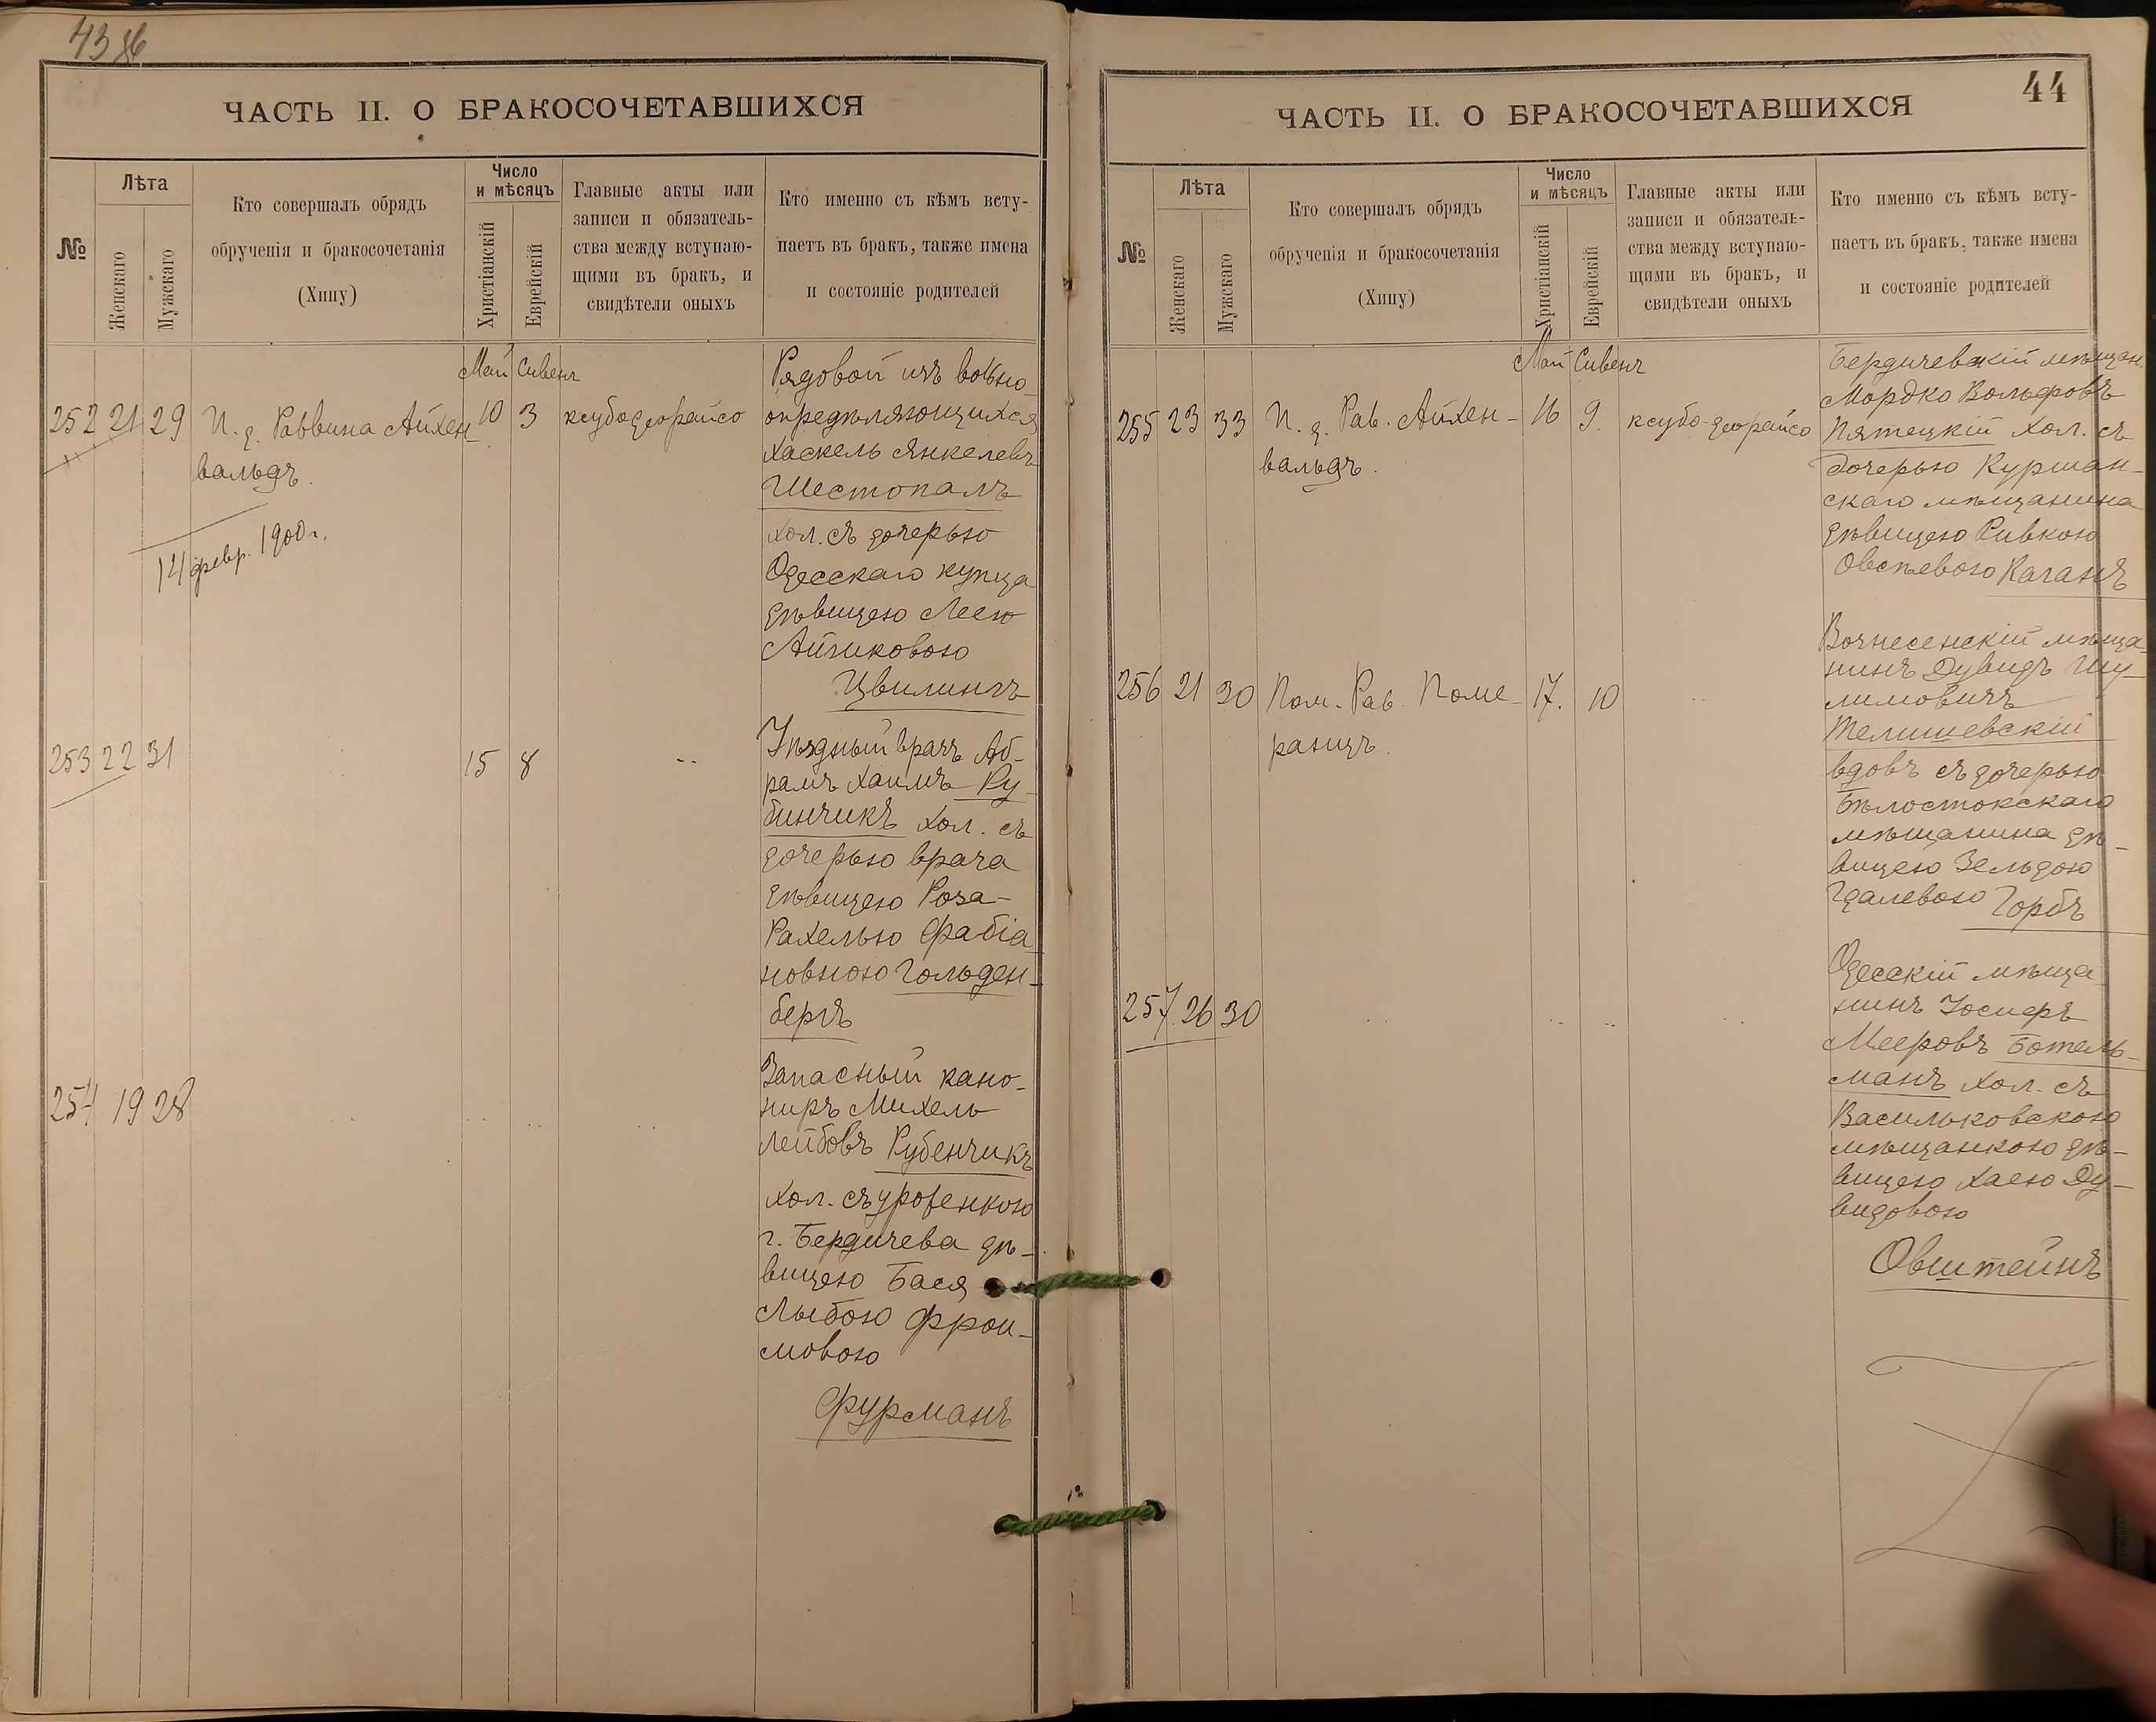 43 об
ЧАСТЬ II. О БРАКОСОЧЕТАВШИХСЯ
№
Лѣта
Женскаго
Мужскаго
Кто совершалъ обрядъ
обрученія и бракосочетанія
(Хипу)
Число
и мѣсяцъ
Христіанскій
Еврейскій
Главные акты или
записи и обязатель-
ства между вступаю-
щими въ бракъ, и
свидѣтели оныхъ
Кто именно съ кѣмъ всту-
паетъ въ бракъ, также имена
и состояніе родителей
Май Сивенъ
252 21 29 И. д. Раввина Айхен 10 3 ксубо деорайсо
вальдъ.
14 февр. 1900 г.
Рядовой изъ вольно
опредѣляющихся
Хаскель Янкелевъ
Шестопалъ
хол. съ дочерью
Одесскаго купца
дѣвицею Леею
Айзиковою
Цвилингъ
253 22 31 15 8 --
Уѣздный врачъ Аб-
рамъ Хаимъ Ру-
бинчикъ хол. съ
дочерью врача
дѣвицею Роза-
Рахелью Фабіа
новною Гольден-
бергъ
254 19 28 .. .. .. ..
Запасный кано-
ниръ Михель
Лейбовъ Рубенчикъ
хол. съ уроженкою
г. Бердичева дѣ-
вицею Бася
Лыбою Фрои-
мовою
Фурманъ
44
ЧАСТЬ II. О БРАКОСОЧЕТАВШИХСЯ
№
Лѣта
Женскаго
Мужскаго
Кто совершалъ обрядъ
обрученія и бракосочетанія
(Хипу)
Число
и мѣсяцъ
Христіанскій
Еврейскій
Главные акты или
записи и обязатель-
ства между вступаю-
щими въ бракъ, и
свидѣтели оныхъ
Кто именно съ кѣмъ всту-
паетъ въ бракъ, также имена
и состояніе родителей
Май Сивенъ
255 23 33 И. д. Рав. Айхен- 16 9. ксубо-деорайсо
вальдъ.
Бердичевскій мѣщан.
Мордко Вольфовъ
Пятецкій хол. съ
дочерью Куршан-
скаго мѣщанина
дѣвицею Ривкою
Овсѣевою Каганъ
256 21 30 Пом. Рав. Поме- 17. 10 ..
ранцъ.
Вознесенскій мѣща-
нинъ Дувидъ Шу-
лимовичъ
Телишевскій
вдовъ съ дочерью
Бѣлостокскаго
мѣщанина дѣ-
вицею Зельдою
Гдалевою Горбъ
257 26 30 .. .. .. ..
Одесскій мѣща
нинъ Іосифъ
Мееровъ Ботель-
манъ хол. съ
Васильковскою
мѣщанкою дѣ-
вицею Хаею Ду-
видовою
Овштейнъ